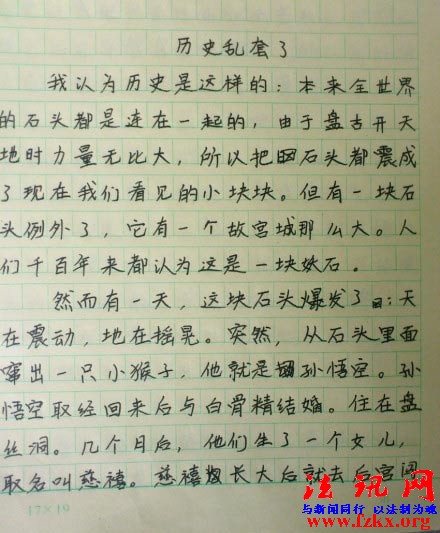 历史乱套了
我认为历史是这样的：本来全世界
的石头都是连在一起的，由于盘古开天
地时力量无比大，所以把石头都震成
了现在我们看见的小块块。但有一块石
头例外了，它有一个故宫城那么大。人
们千百年来都认为这是一块妖石。
然而有一天，这块石头爆发了：天
在震动，地在摇晃。突然，从石头里面
窜出一只小猴子，他就是孙悟空。孙
悟空取经回来后与白骨精结婚。住在盘
丝洞。几个月后，他们生了一个女儿，
取名叫慈禧。慈禧长大后就去后宫闯
17×19
法讯网
与新闻同行 以法制为魂
www.fzkx.org